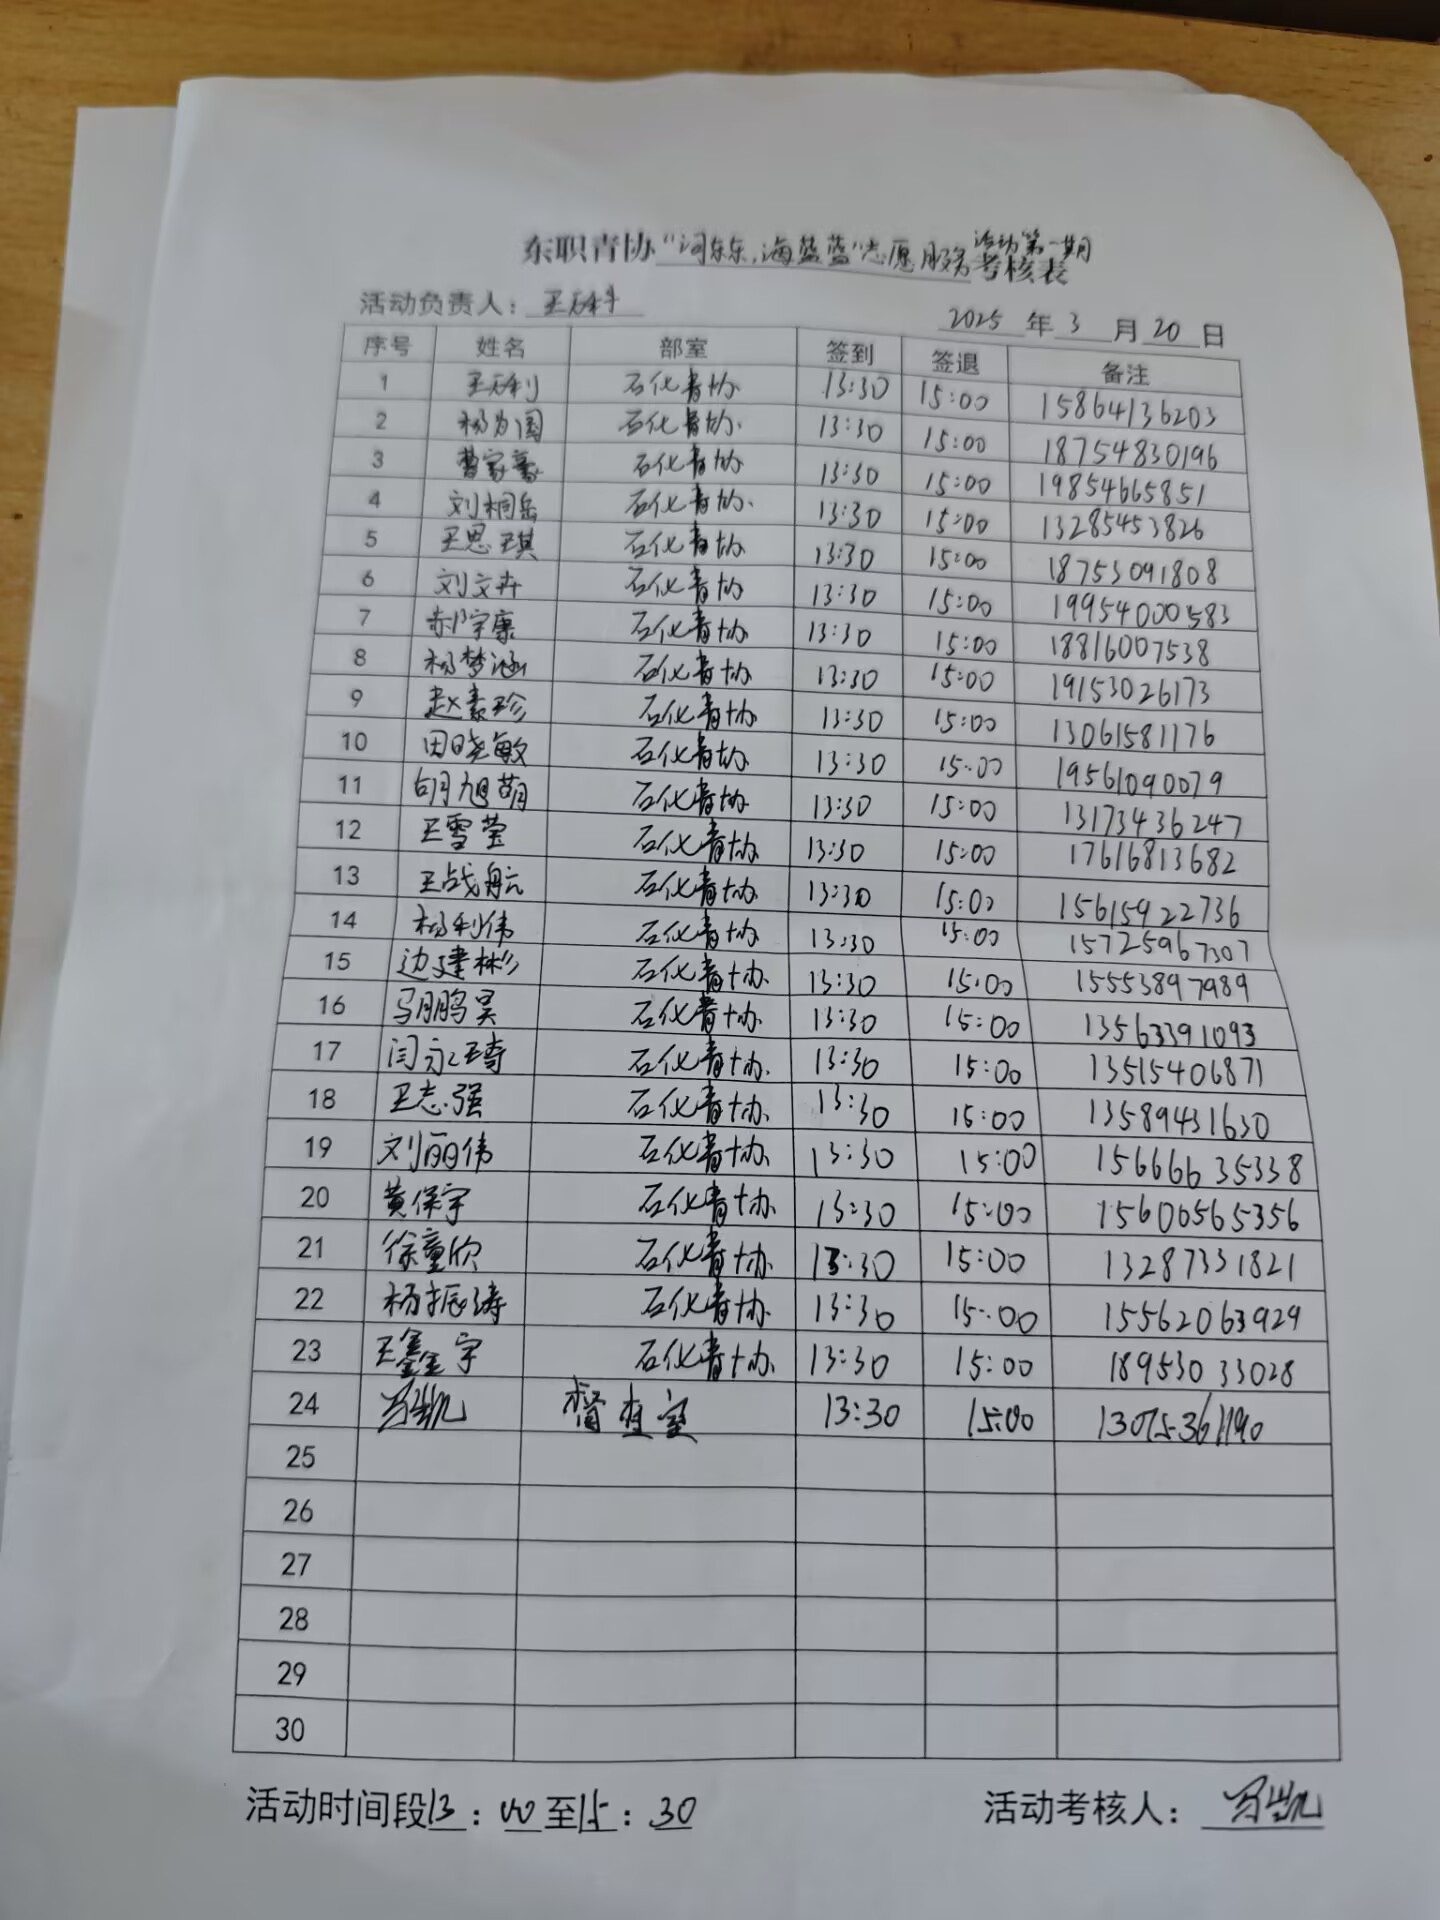 东职青协"河东东,海蓝蓝"志愿服务活动第一期考核表
活动负责人: 2025 年 3 月 20 日
序号 姓名 部室 签到 签退 备注
1 石化青协 13:30 15:00 15864136203
2 杨为国 石化青协 13:30 15:00 18754830196
3 曹家豪 石化青协 13:30 15:00 19854665851
4 刘桐岳 石化青协 13:30 15:00 13285453826
5 王思琪 石化青协 13:30 15:00 18753091808
6 刘文卉 石化青协 13:30 15:00 19954000583
7 郝宇康 石化青协 13:30 15:00 18816007538
8 杨梦涵 石化青协 13:30 15:00 19153026173
9 赵素珍 石化青协 13:30 15:00 13061581176
10 田晓敏 石化青协 13:30 15:00 19561090079
11 胡旭萌 石化青协 13:30 15:00 13173436247
12 王雪莹 石化青协 13:30 15:00 17616813682
13 王战航 石化青协 13:30 15:00 15615922736
14 杨利伟 石化青协 13:30 15:00 15725967307
15 边建彬 石化青协 13:30 15:00 15553897989
16 马鹏昊 石化青协 13:30 15:00 13563391093
17 闫永琦 石化青协 13:30 15:00 13515406871
18 王志强 石化青协 13:30 15:00 13589431630
19 刘丽伟 石化青协 13:30 15:00 15666635338
20 黄保宇 石化青协 13:30 15:00 15600565356
21 徐童欣 石化青协 13:30 15:00 13287331821
22 杨振涛 石化青协 13:30 15:00 15562063929
23 王鑫宇 石化青协 13:30 15:00 18953033028
24 马凯 督查室 13:30 15:00 13075361190
25
26
27
28
29
30
活动时间段13:00至15:30 活动考核人: 马凯